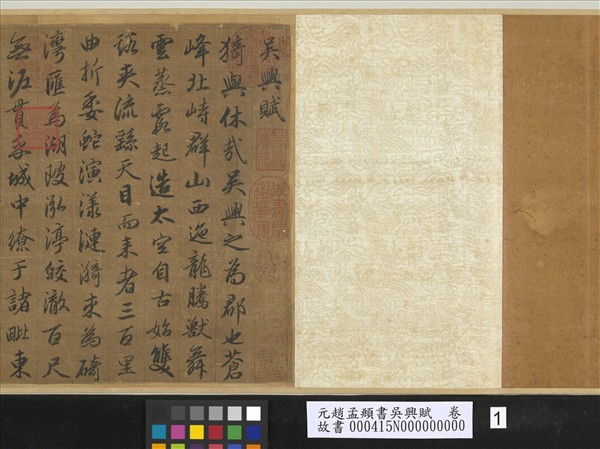 吳興賦
猗與休哉吳興之為郡也蒼
峰北峙群山西迤龍騰獸舞
雲蒸霞起造太空自古始雙
谿夾流繇天目而來者三百里
曲折委蛇演漾漣漪束為碕
灣匯為湖陂泓渟皎澈百尺
無泥貫乎城中繚于諸毗東
元趙孟頫書吳興賦 卷
故書 000415N000000000
1